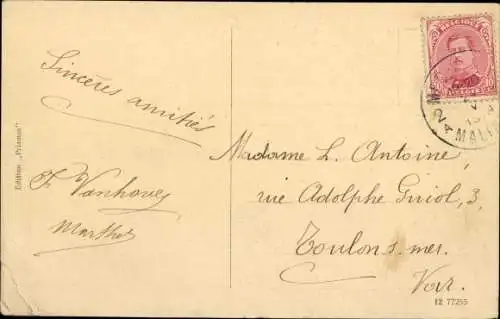 Sincères amitiés
F. Vanhoves
Marthe
Edition „Prismus“
BELGIQUE
10
10
BELGIE
MALIN
Madame L. Antoine,
rue Adolphe Guiol, 3,
Toulon s. mer.
Var.
12 77255